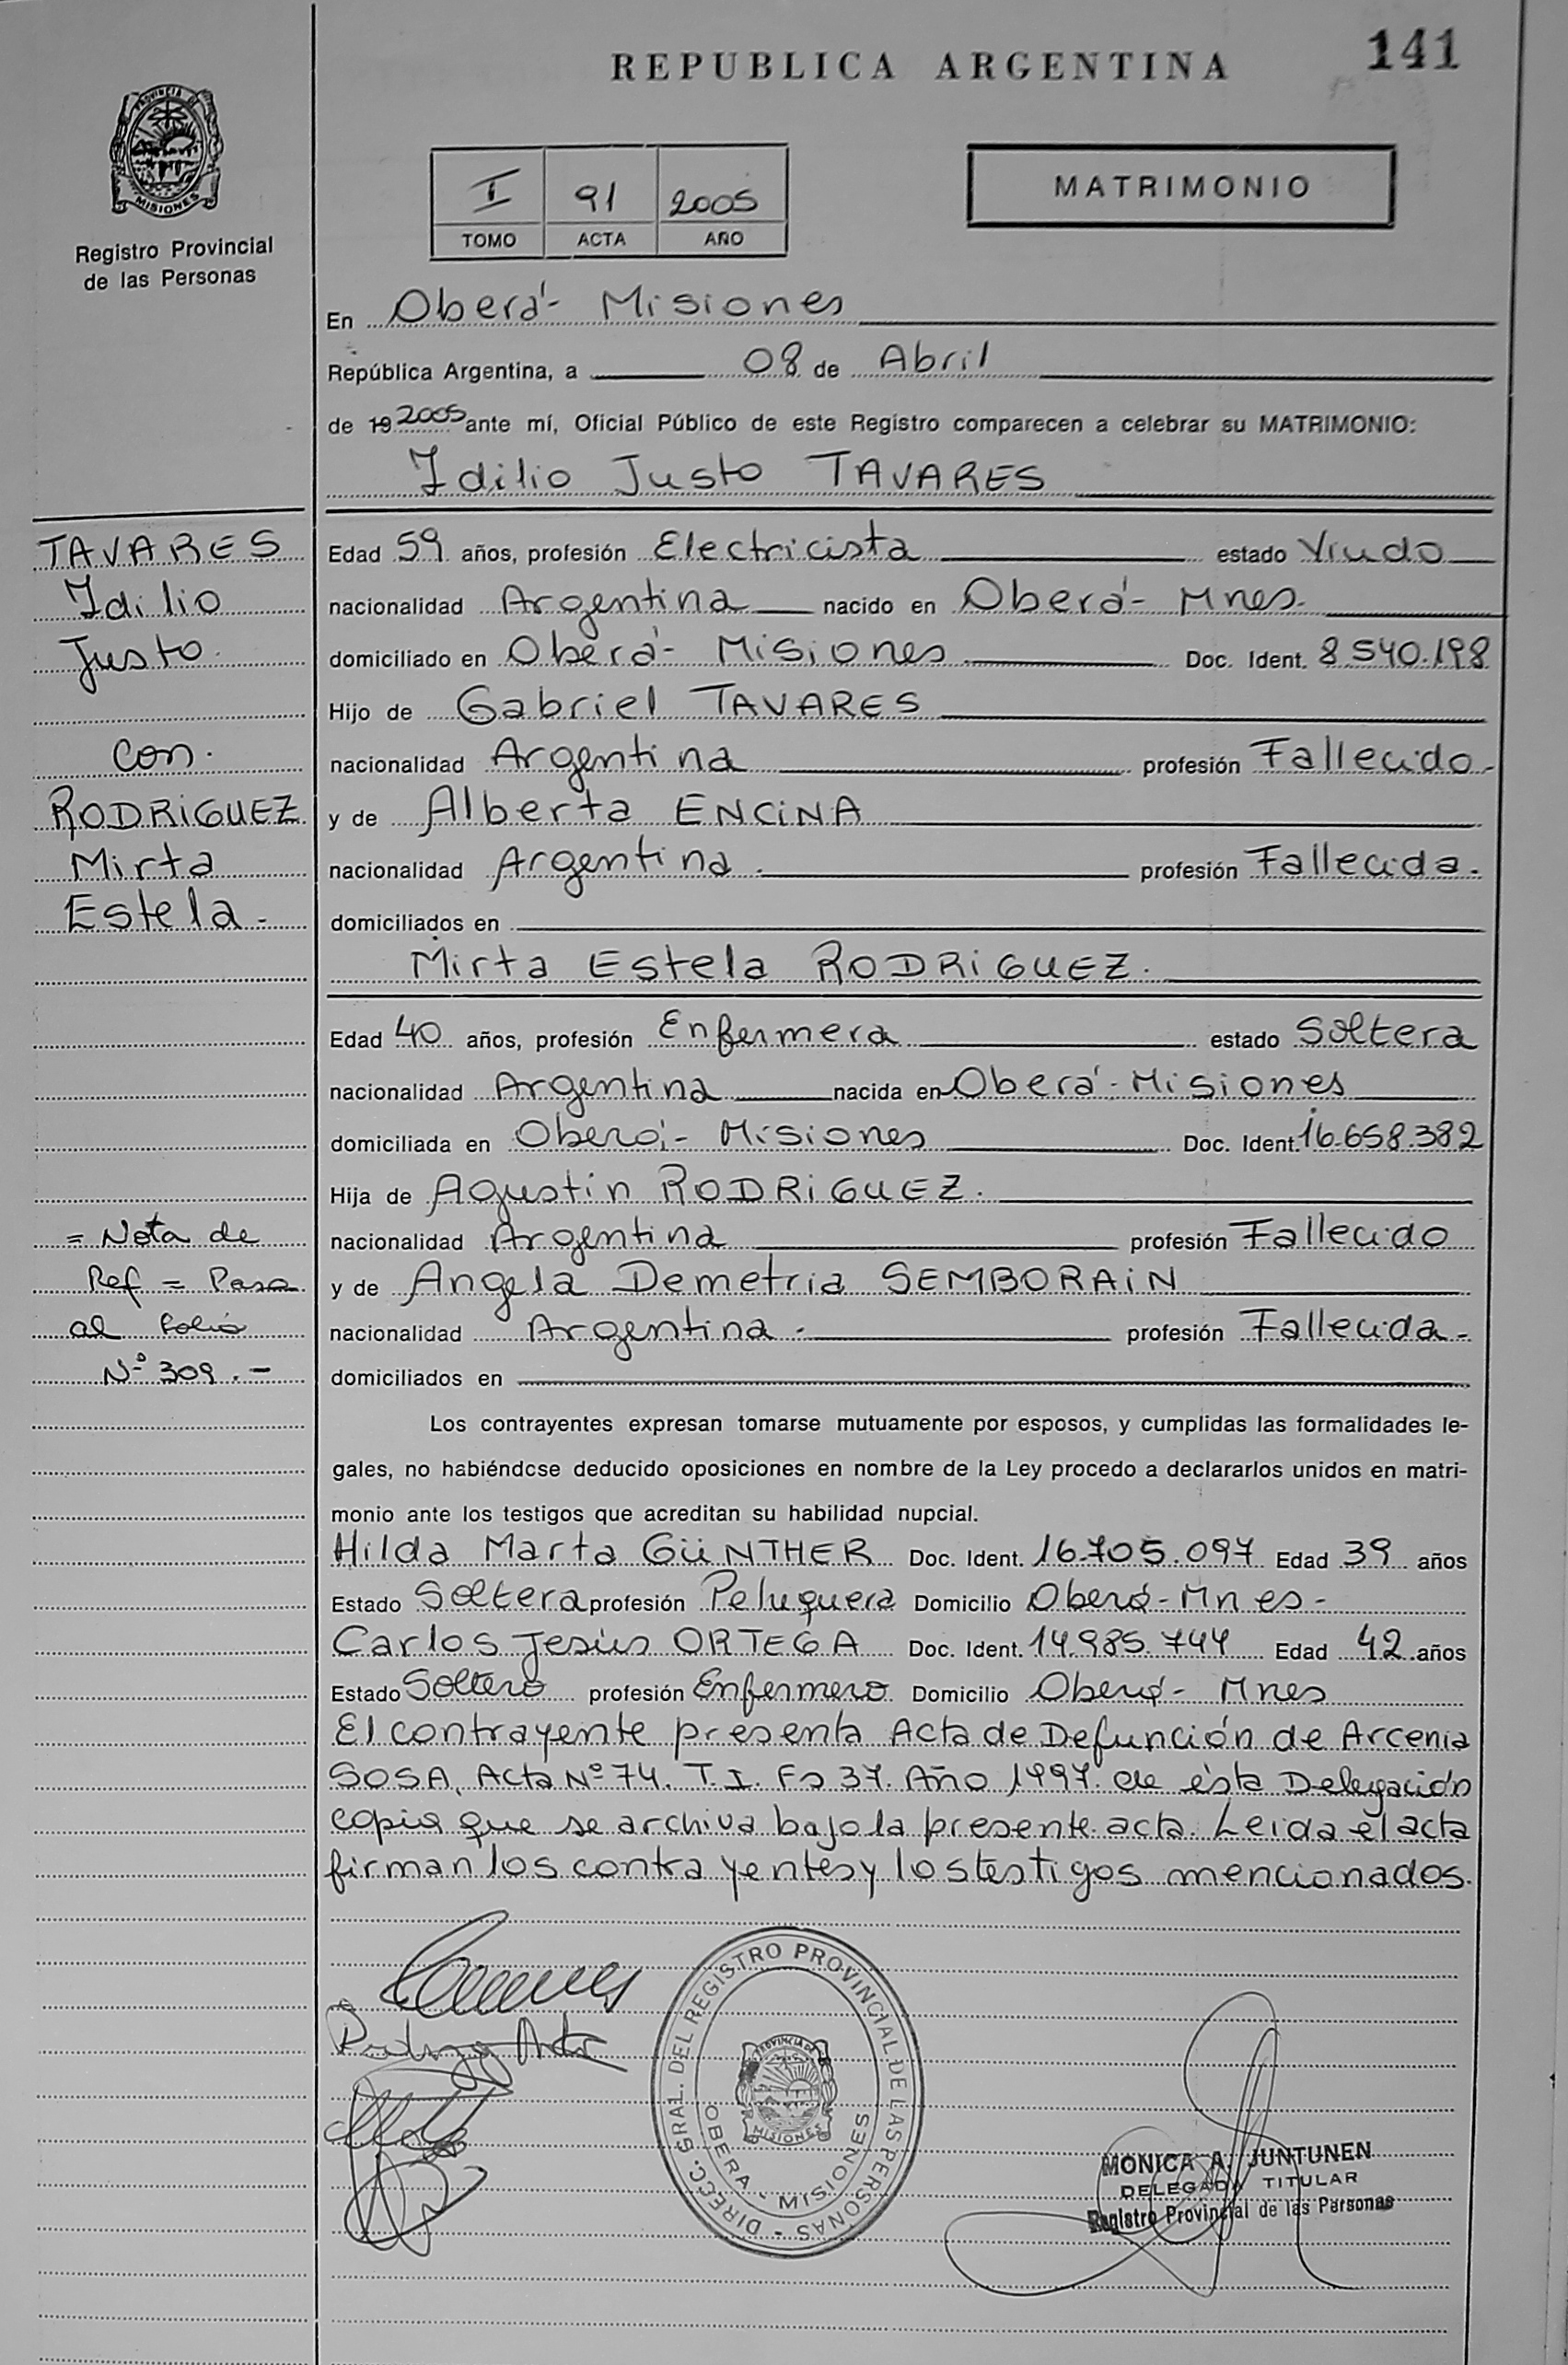 REPUBLICA ARGENTINA
141
PROVINCIA DE
MISIONES
Registro Provincial
de las Personas
I
91
2005
TOMO
ACTA
AÑO
MATRIMONIO
En Oberá- Misiones
República Argentina, a 08 de Abril
de 19 2005 ante mí, Oficial Público de este Registro comparecen a celebrar su MATRIMONIO:
Idilio Justo TAVARES
TAVARES
Idilio
Justo.
Con.
RODRiGUEZ
Mirta
Estela-
= Nota de
Ref = Pasa
al Folio
Nº 309.-
Edad 59 años, profesión Electricista estado Viudo
nacionalidad Argentina nacido en Oberá- Mnes-
domiciliado en Oberá- Misiones Doc. Ident. 8.540.198
Hijo de Gabriel TAVARES
nacionalidad Argentina profesión Fallecido-
y de Alberta ENCiNA
nacionalidad Argentina. profesión Fallecida.
domiciliados en
Mirta Estela RODRiGUEZ.
Edad 40 años, profesión Enfermera estado Soltera
nacionalidad Argentina nacida en Oberá-Misiones
domiciliada en Oberá- Misiones Doc. Ident. 16.658.382
Hija de Agustin RODRiGUEZ.
nacionalidad Argentina profesión Fallecido
y de Angela Demetria SEMBORAiN
nacionalidad Argentina- profesión Fallecida-
domiciliados en
Los contrayentes expresan tomarse mutuamente por esposos, y cumplidas las formalidades le-
gales, no habiéndcse deducido oposiciones en nombre de la Ley procedo a declararlos unidos en matri-
monio ante los testigos que acreditan su habilidad nupcial.
Hilda Marta GüNTHER Doc. Ident. 16.705.097 Edad 39 años
Estado Soltera profesión Peluquera Domicilio Oberá-Mnes-
Carlos Jesús ORTEGA Doc. Ident. 14.985.744 Edad 42 años
Estado Soltero profesión Enfermero Domicilio Oberá- Mnes
El contrayente presenta Acta de Defunción de Arcenia
SOSA, Acta Nº 74. T.I. Fº 37. Año 1997. de ésta Delegación
copia que se archiva bajo la presente acta. Leida el acta
firman los contrayentes y los testigos mencionados.
DIRECC. GRAL. DEL REGISTRO PROVINCIAL DE LAS PERSONAS -
OBERA - MISIONES
PROVINCIA DE
MISIONES
MONICA A. JUNTUNEN
DELEGADA TITULAR
Registro Provincial de las Personas